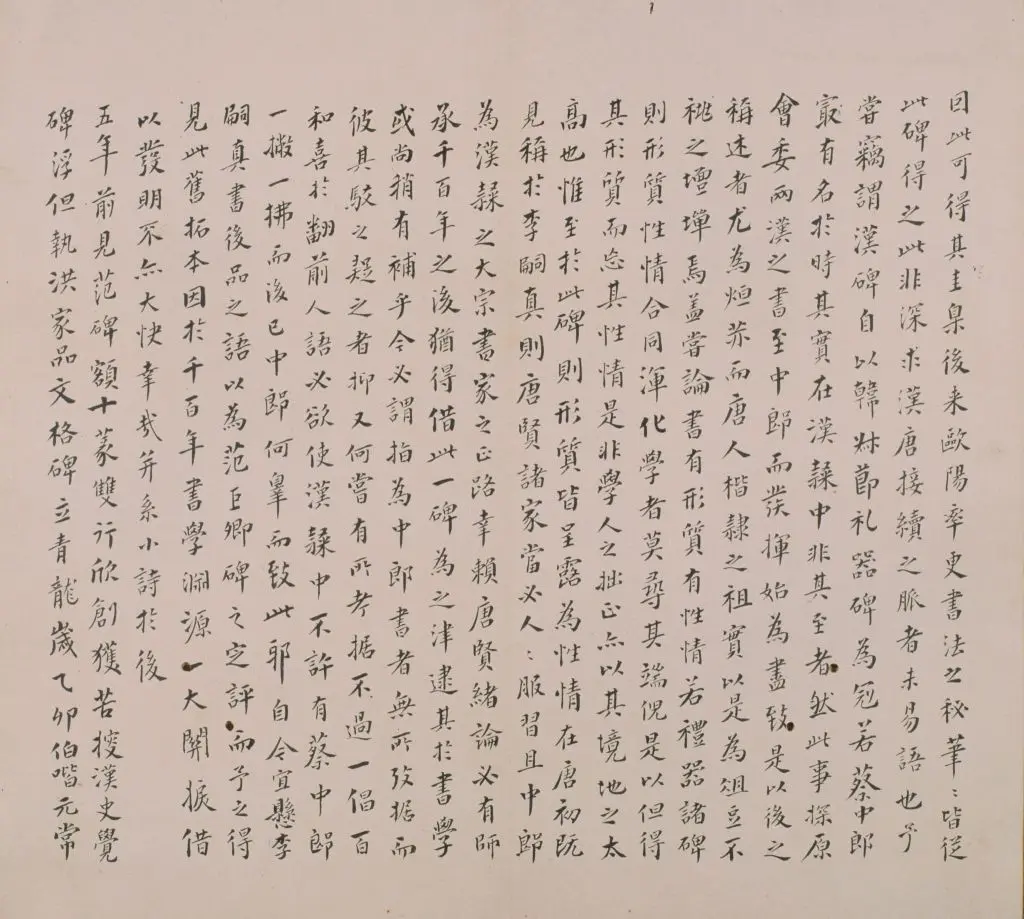 因此可得其圭臬後来歐陽率更書法之秘筆﹕皆從
此碑得之此非深求漢唐接續之脈者未易語也予
嘗竊謂漢碑自以韓勑節礼器碑為冠若蔡中郎
㝡有名於時其實在漢隸中非其至者然此事探原
會委兩漢之書至中郎而發揮始為盡致是以後之
稱述者尤為烜赤而唐人楷隸之祖實以是為俎豆不
祧之壇墠焉盖嘗論書有形質有性情若禮器諸碑
則形質性情合同渾化學者莫尋其端倪是以但得
其形質而忘其性情是非學人之拙正亦以其境地之太
高也惟至於此碑則形質皆呈露為性情在唐初既
見稱於李嗣真則唐賢諸家當必人﹕服習且中郎
為漢隸之大宗書家之正路幸賴唐賢緒論必有師
承千百年之後猶得借此一碑為之津逮其於書學
或尚稍有補乎今必謂指為中郎書者無所攷据而
彼其駁之疑之者抑又何嘗有所考据不過一倡百
和喜於翻前人語必欲使漢隸中不許有蔡中郎
一撇一拂而後已中郎何辜而致此耶自今宜懸李
嗣真書後品之語以為范巨卿碑之定評而予之得
見此舊拓本因於千百年書學淵源一大關捩借
以發明不亦大快幸哉并系小詩於後
五年前見范碑額十篆雙行欣創獲苦搜漢史覺
碑浮但執洪家品文格碑立青龍歲乙卯伯喈元常